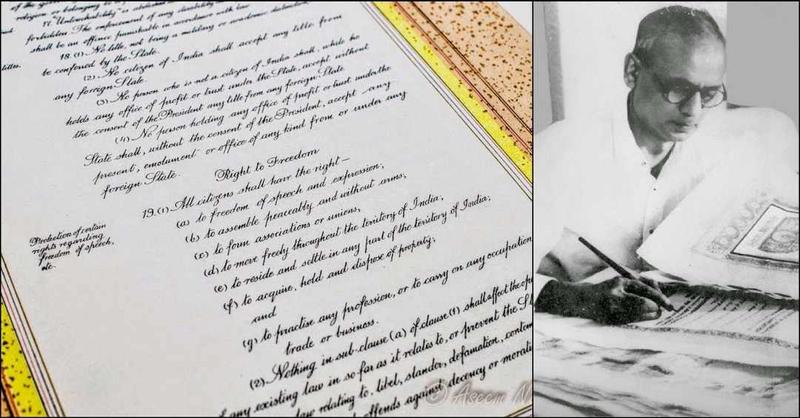 religion or belonging to
17. "Untouchability" is abolished
forbidden. The enforcement of any disability
shall be an offence punishable in accordance with law
18. (1) No title, not being a military or academic distinction
be conferred by the State.
(2) No citizen of India shall accept any title from
any foreign State.
(3) No person who is not a citizen of India shall, while he
holds any office of profit or trust under the State, accept without
the consent of the President any title from any foreign State.
(4) No person holding any office of profit or trust under the
State shall, without the consent of the President, accept any
present, emolument or office of any kind from or under any
foreign State.
Right to Freedom
Protection of certain
rights regarding
freedom of speech,
etc.
19. (1) All citizens shall have the right—
(a) to freedom of speech and expression;
(b) to assemble peaceably and without arms;
(c) to form associations or unions;
(d) to move freely throughout the territory of India;
(e) to reside and settle in any part of the territory of India;
(f) to acquire, hold and dispose of property;
and
(g) to practise any profession, or to carry on any occupation
trade or business.
(2) Nothing in sub-clause (a) of clause (1) shall affect the
any existing law in so far as it relates to, or prevent the
law relating to, libel, slander, defamation,
offends against decency or
© Aseem